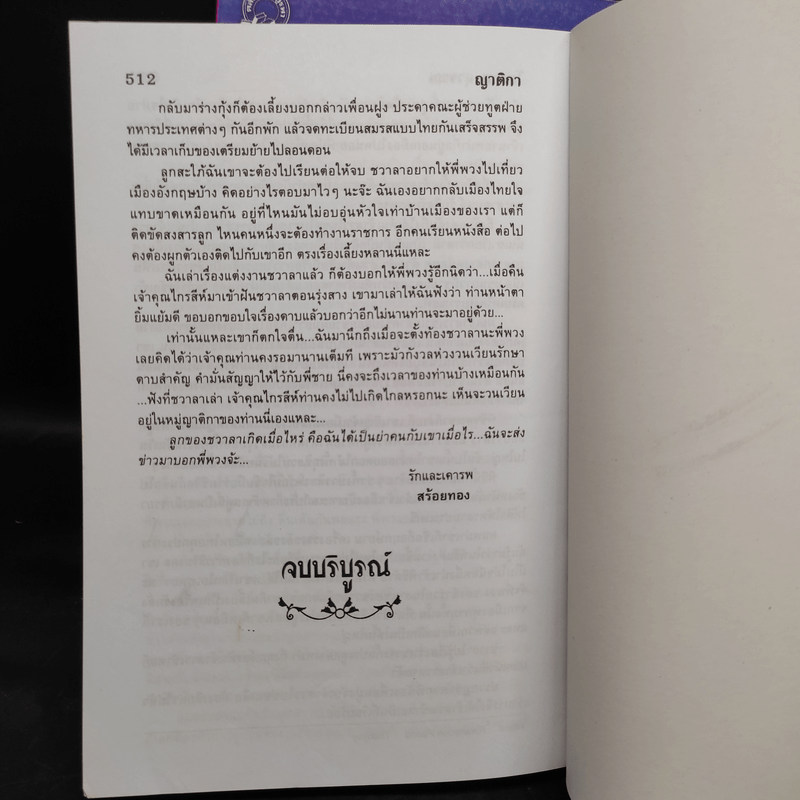 512
ญาติกา
กลับมาร่างกุ้งก็ต้องเลี้ยงบอกกล่าวเพื่อนฝูง ประดาคณะผู้ช่วยทูตฝ่าย
ทหารประเทศต่างๆ กันอีกพัก แล้วจดทะเบียนสมรสแบบไทยกันเสร็จสรรพ จึง
ได้มีเวลาเก็บของเตรียมย้ายไปลอนดอน
ลูกสะใภ้ฉันเขาจะต้องไปเรียนต่อให้จบ ชวาลาอยากให้พี่พวงไปเที่ยว
เมืองอังกฤษบ้าง คิดอย่างไรตอบมาไวๆ นะจ๊ะ ฉันเองอยากกลับเมืองไทยใจ
แทบขาดเหมือนกัน อยู่ที่ไหนมันไม่อบอุ่นหัวใจเท่าบ้านเมืองของเรา แต่ก็
ติดขัดสงสารลูก ไหนคนหนึ่งจะต้องทำงานราชการ อีกคนเรียนหนังสือ ต่อไป
คงต้องผูกตัวเองติดไปกับเขาอีก ตรงเรื่องเลี้ยงหลานนี่แหละ
ฉันเล่าเรื่องแต่งงานชวาลาแล้ว ก็ต้องบอกให้พี่พวงรู้อีกนิดว่า...เมื่อคืน
เจ้าคุณไกรสีห์มาเข้าฝันชวาลาตอนรุ่งสาง เขามาเล่าให้ฉันฟังว่า ท่านหน้าตา
ยิ้มแย้มดี ขอบอกขอบใจเรื่องดาบแล้วบอกว่าอีกไม่นานท่านจะมาอยู่ด้วย...
เท่านั้นแหละเขาก็ตกใจตื่น...ฉันมานึกถึงเมื่อจะตั้งท้องชวาลานะพี่พวง
เลยคิดได้ว่าเจ้าคุณท่านคงรอมานานเต็มที เพราะมัวกังวลห่วงวนเวียนรักษา
ดาบสำคัญ คำมั่นสัญญาให้ไว้กับพี่ชาย นี่คงจะถึงเวลาของท่านบ้างเหมือนกัน
...ฟังที่ชวาลาเล่า เจ้าคุณไกรสีห์ท่านคงไม่ไปเกิดไกลหรอกนะ เห็นจะวนเวียน
อยู่ในหมู่ญาติกาของท่านนี่เองแหละ...
ลูกของชวาลาเกิดเมื่อไหร่ คือฉันได้เป็นย่าคนกับเขาเมื่อไร...ฉันจะส่ง
ข่าวมาบอกพี่พวงจ้ะ...
รักและเคารพ
สร้อยทอง
จบบริบูรณ์